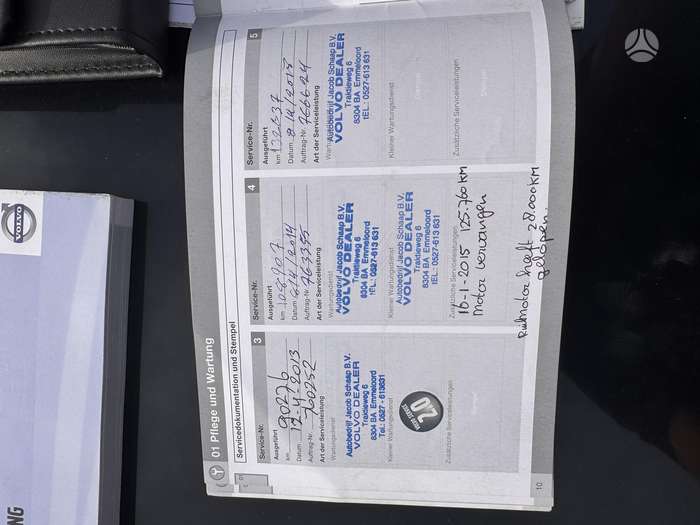 VOLVO
NG
01 Pflege und Wartung
Servicedokumentation und Stempel
Service-Nr. 3
Ausgeführt
km 90276
Datum 12-4-2013
Auftrag-Nr. 760252
Art der Serviceleistung
Wartungsdienst
Autobedrijf Jacob Schaap B.V.
VOLVO DEALER
Traktieweg 6
8304 BA Emmeloord
Tel.: 0527 - 613631
Kleiner Wartungsdienst
2.0
Zusätzliche Serviceleistungen
Service-Nr. 4
Ausgeführt
km 108907
Datum
Auftrag-Nr. 763355
Art der Serviceleistung
Wartungsdienst
Autobedrijf Jacob Schaap B.V.
VOLVO DEALER
Traktieweg 6
8304 BA Emmeloord
tEL.: 0527-613 631
Kleiner Wartungsdienst
Autobedrijf Jacob Schaap B.V.
VOLVO DEALER
Traktieweg 6
8304 BA Emmeloord
tEL.: 0527-613 631
Zusätzliche Serviceleistungen
16-1-2015 125.760 KM
Motor vervangen
Ruilmotor heeft 28.000 KM
gelopen.
Service-Nr. 5
Ausgeführt
km 132637
Datum 8/4/2015
Auftrag-Nr. 766624
Art der Serviceleistung
Wartungsdienst
Autobedrijf Jacob Schaap B.V.
VOLVO DEALER
Traktieweg 6
8304 BA Emmeloord
tEL.: 0527-613 631
Kleiner Wartungsdienst
Zusätzliche Serviceleistungen
10